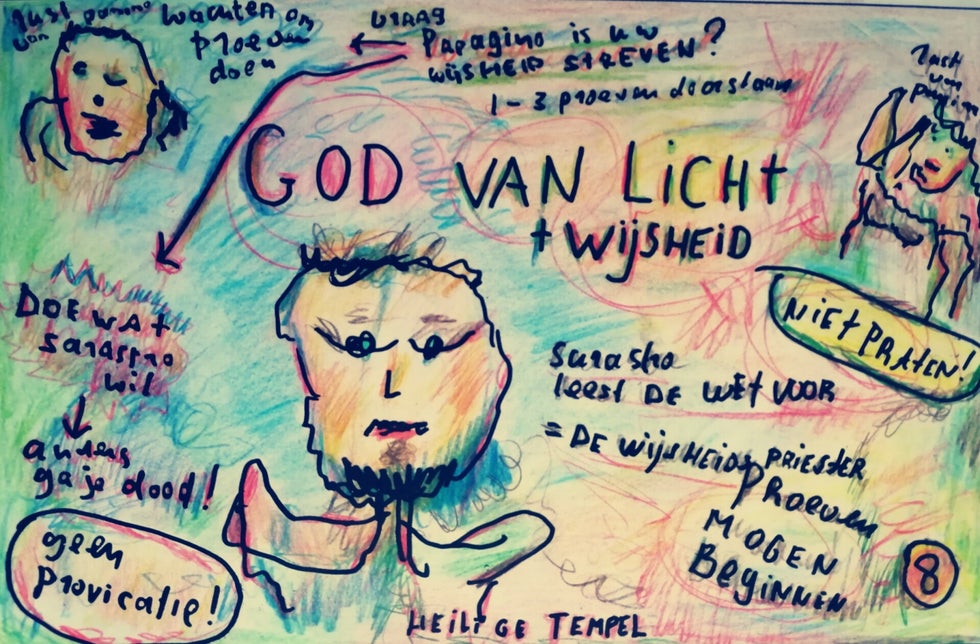 wachten om
proeven
doen
VRAAG
Papagino is uw
wijsheid STREVEN?
1 - 3 proeven doorstaan
GOD VAN LiCHt
+ WijSHEiD
NiEt PRAtEN!
DOE WAt
sarastro
wil
anders
ga je dood!
geen
provicatie!
Sarastro
leest DE WEt VOOR
= DE WijSHEiDSPRIESTER
PROEVEN
MOGEN
BEgiNNEN
8
HEiLiGE TEMPEL